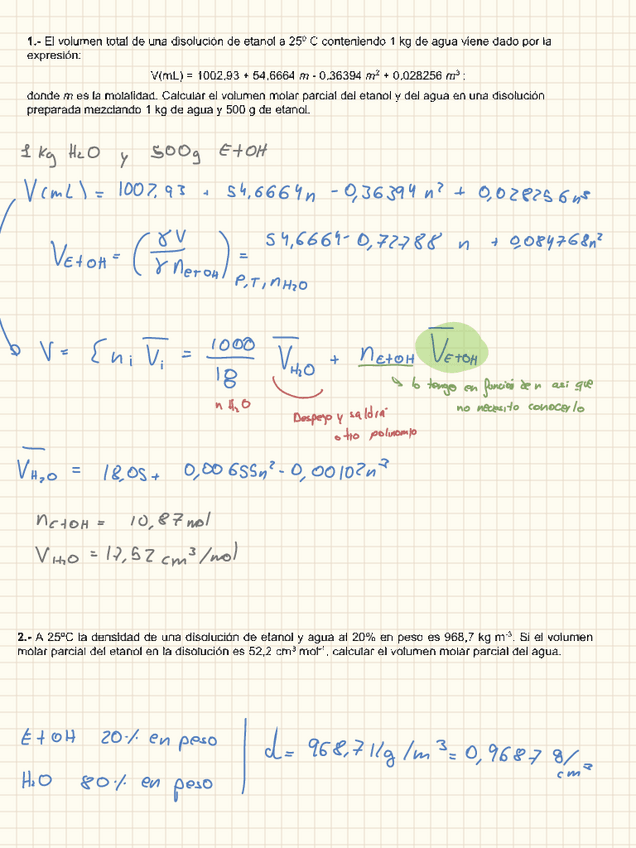 1.- El volumen total de una disolución de etanol a 25º C conteniendo 1 kg de agua viene dado por la
expresión:
V(mL) = 1002,93 + 54,6664 m - 0,36394 m² + 0,028256 m³ ;
donde m es la molalidad. Calcular el volumen molar parcial del etanol y del agua en una disolución
preparada mezclando 1 kg de agua y 500 g de etanol.
1 Kg H₂O y 500g EtOH
V(mL) = 1002,93 + 54,6664n - 0,36394 n² + 0,028256n³
V EtOH = (γV / γ nEtOH) P,T,nH₂O = 54,6664 - 0,72788 n + 0,084768n²
V = Σ ni V̅i = 1000/18 V̅H₂O + nEtOH V̅EtOH
n H₂O
lo tengo en función de n asi que
no necesito conocerlo
Despejo y saldra
otro polinomio
V̅H₂O = 18,05 + 0,00655n² - 0,00102n³
nEtOH = 10,87 mol
V H₂O = 17,52 cm³/mol
2.- A 25ºC la densidad de una disolución de etanol y agua al 20% en peso es 968,7 kg m⁻³. Si el volumen
molar parcial del etanol en la disolución es 52,2 cm³ mol⁻¹, calcular el volumen molar parcial del agua.
EtOH 20% en peso
H₂O 80% en peso
d = 968,7 kg/m³ = 0,9687 g/cm³